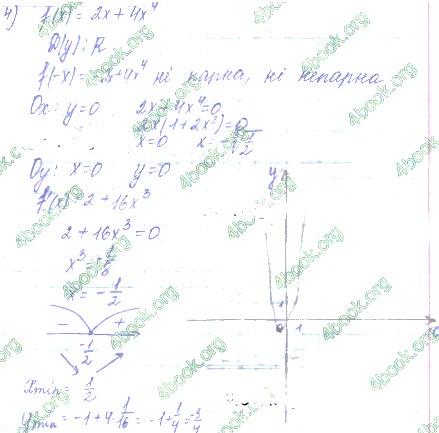 4) f(x) = 2x + 4x⁴
D(y): R
f(-x) = + 4x⁴ ні парна, ні непарна
Ox: y = 0 2x + 4x⁴ = 0
2x(1 + 2x³) = 0
x = 0 x =
Oy: x = 0 y = 0
f'(x) = 2 + 16x³
2 + 16x³ = 0
x³
x = -1/2
- +
-1/2
xmin = 1/2
ymin = -1 + 4·1/16 = -1 + 1/4 = -3/4
y
1
1
4book.org